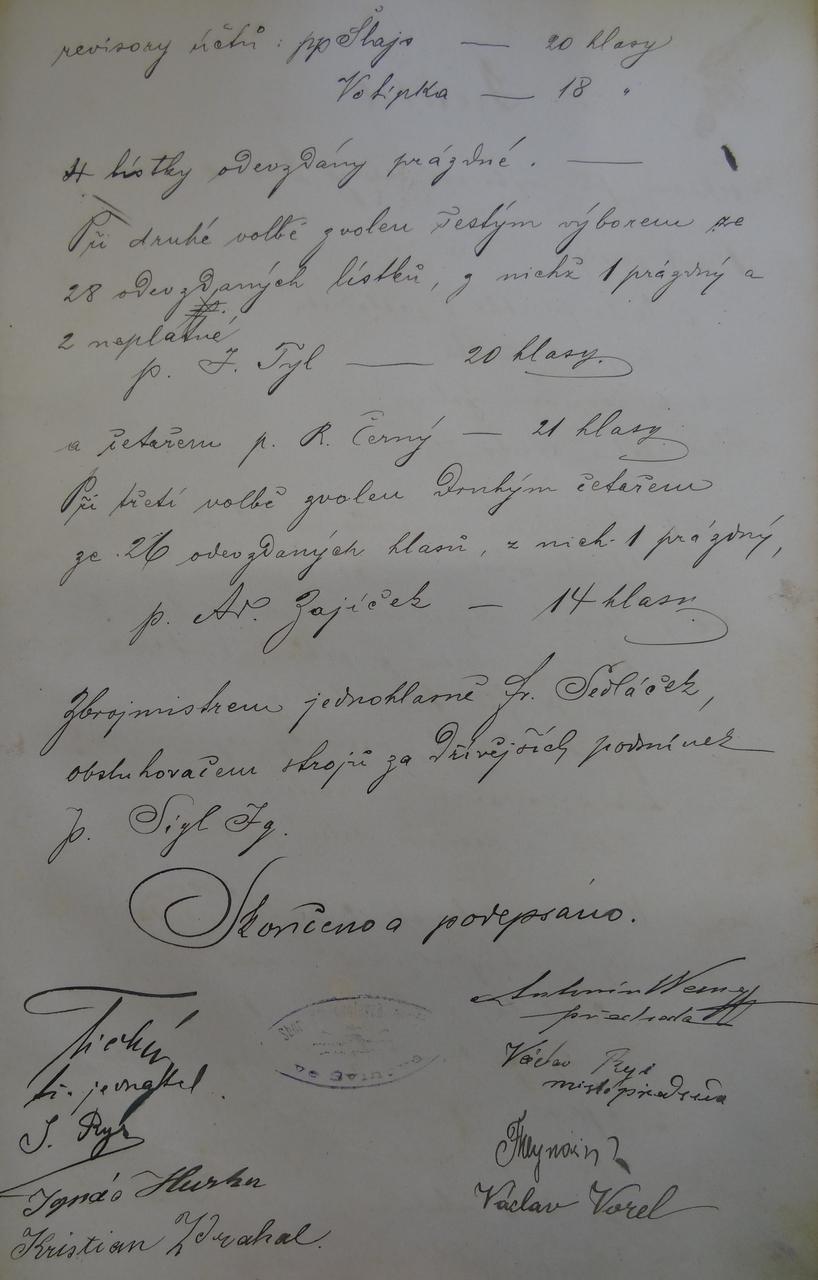 revisory účtů : pp Šlajs — 20 hlasy
Votipka — 18 "
4 lístky odevzdány prázdné. —
Při druhé volbě zvolen šestým výborem ze
28 odevzdaných lístků, z nichž 1 prázdný a
2 neplatné
p. J. Tyl — 20 hlasy.
a četařem p. R. Černý — 21 hlasy
Při třetí volbě zvolen druhým četařem
ze 26 odevzdaných hlasů, z nich 1 prázdný,
p. Ad. Zajíček — 14 hlasy
Zbrojmistrem jednohlasně Fr. Sedláček,
obsluhovačem strojů za dřívějších podmínek
p. Sigl Ig.
Skončeno a podepsáno.
Antonín
předseda
Tichý
t. č. jednatel.
Václav
místopředseda
Ignác
Václav Vorel
Kristian